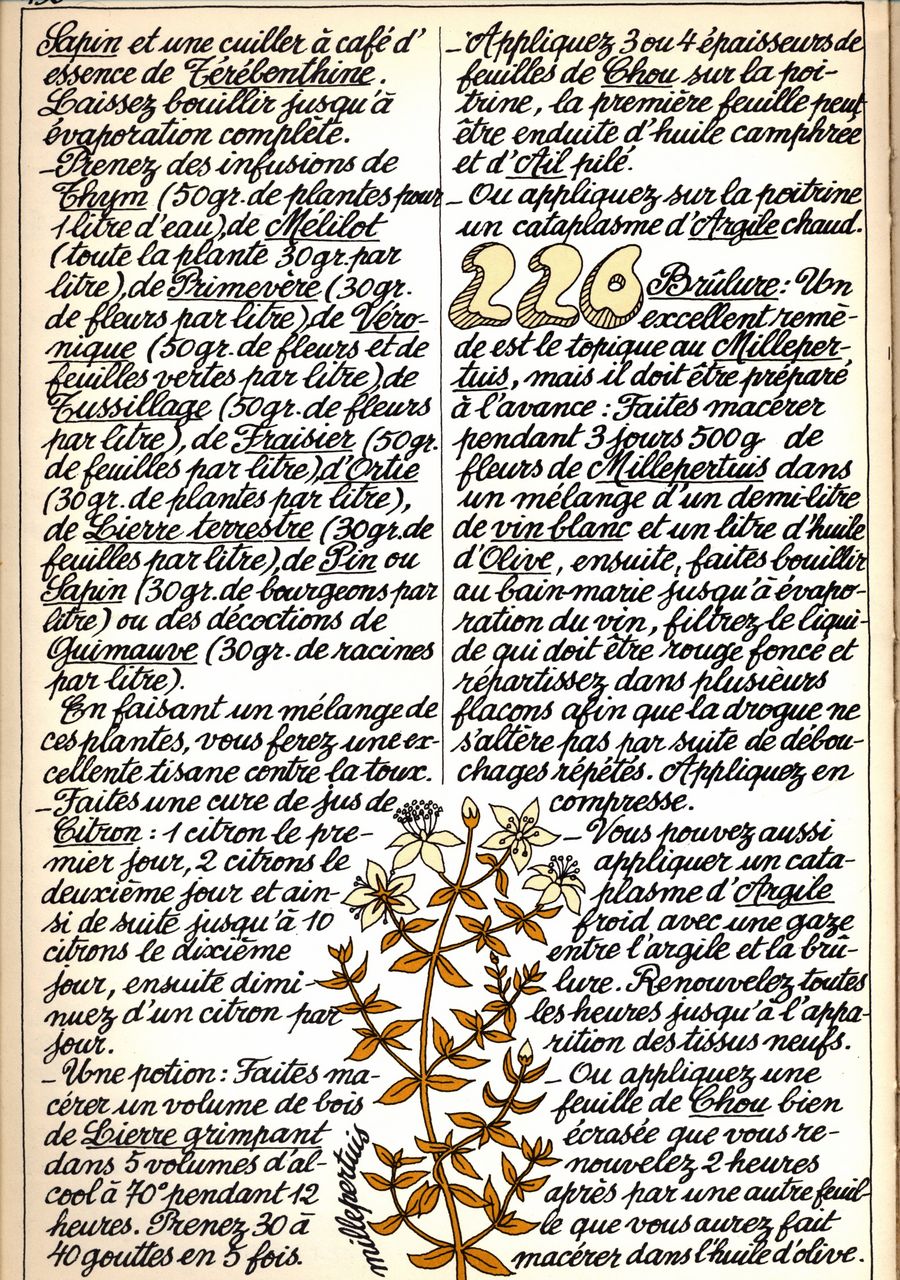 Sapin et une cuiller à café d'
essence de Térébenthine.
Laissez bouillir jusqu'à
évaporation complète.
– Prenez des infusions de
Thym (50gr. de plantes pour
1 litre d'eau), de Mélilot
(toute la plante 30gr. par
litre), de Primevère (30gr.
de fleurs par litre), de Véro-
nique (50gr. de fleurs et de
feuilles vertes par litre), de
Tussillage (50gr. de fleurs
par litre), de Fraisier (50gr.
de feuilles par litre), d'Ortie
(30gr. de plantes par litre),
de Lierre terrestre (30gr. de
feuilles par litre), de Pin ou
Sapin (30gr. de bourgeons par
litre) ou des décoctions de
Guimauve (30gr. de racines
par litre).
En faisant un mélange de
ces plantes, vous ferez une ex-
cellente tisane contre la toux.
– Faites une cure de jus de
Citron : 1 citron le pre-
mier jour, 2 citrons le
deuxième jour et ain-
si de suite jusqu'à 10
citrons le dixième
jour, ensuite dimi-
nuez d'un citron par
jour.
– Une potion : Faites ma-
cérer un volume de bois
de Lierre grimpant
dans 5 volumes d'al-
cool à 70° pendant 12
heures. Prenez 30 à
40 gouttes en 5 fois.
millepertuis
– Appliquez 3 ou 4 épaisseurs de
feuilles de Chou sur la poi-
trine, la première feuille peut
être enduite d'huile camphrée
et d'Ail pilé.
– Ou appliquez sur la poitrine
un cataplasme d'Argile chaud.
226 Brûlure : Un
excellent remè-
de est le topique au Milleper-
tuis, mais il doit être préparé
à l'avance : Faites macérer
pendant 3 jours 500g de
fleurs de Millepertuis dans
un mélange d'un demi-litre
de vin blanc et un litre d'huile
d'Olive, ensuite, faites bouillir
au bain-marie jusqu'à évapo-
ration du vin, filtrez le liqui-
de qui doit être rouge foncé et
répartissez dans plusieurs
flacons afin que la drogue ne
s'altère pas par suite de débou-
chages répétés. Appliquez en
compresse.
– Vous pouvez aussi
appliquer un cata-
plasme d'Argile
froid avec une gaze
entre l'argile et la brû-
lure. Renouvelez toutes
les heures jusqu'à l'appa-
rition des tissus neufs.
– Ou appliquez une
feuille de Chou bien
écrasée que vous re-
nouvelez 2 heures
après par une autre feuil-
le que vous aurez fait
macérer dans l'huile d'olive.